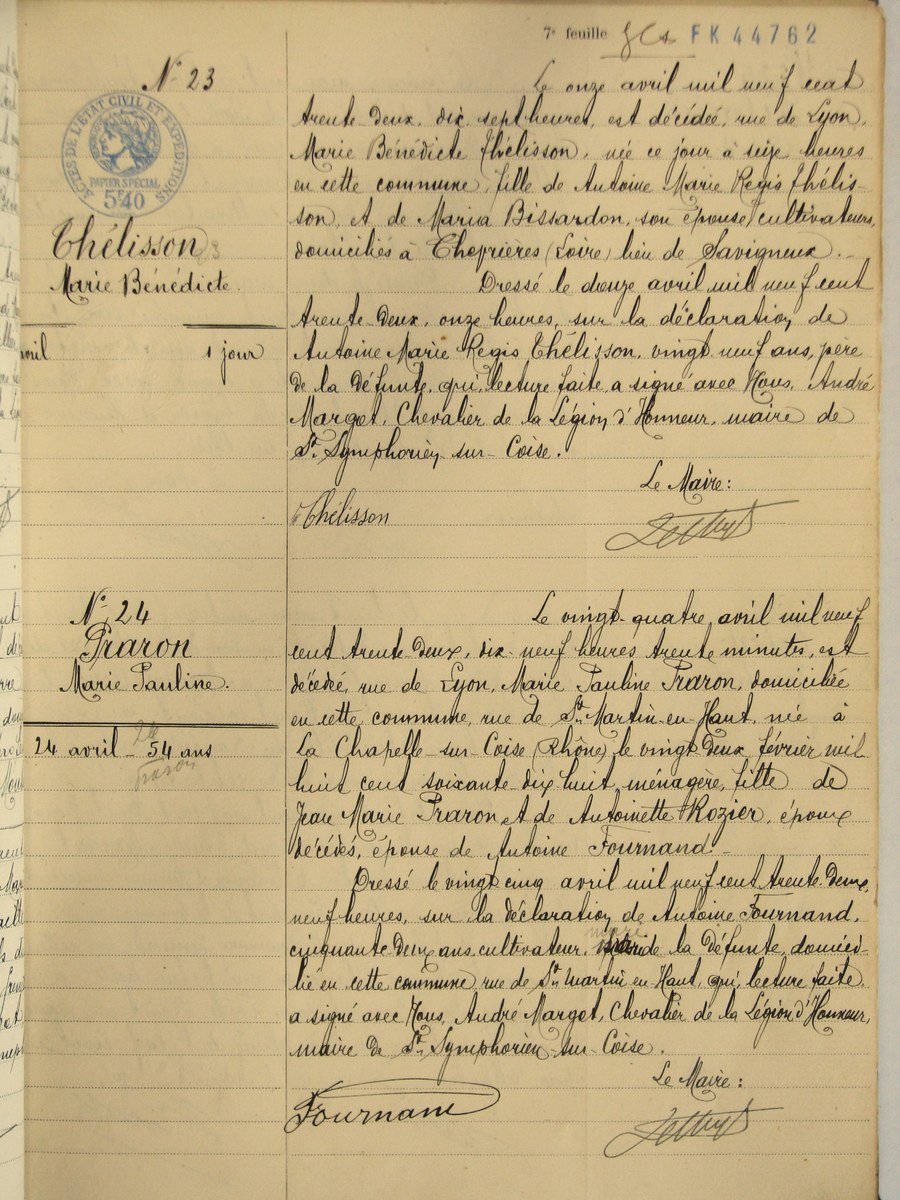 7e feuille FK 44762
N° 23
ACTES DE L'ETAT CIVIL ET EXPEDITIONS
PAPIER SPÉCIAL
5F40
Thélisson
Marie Bénédicte.
avril 1 jour
Le onze avril mil neuf cent
trente-deux, dix-sept heures, est décédée, rue de Lyon,
Marie Bénédicte Thélisson, née ce jour à seize heures
en cette commune, fille de Antoine Marie Regis Thélis-
son, et de Maria Bissardon, son épouse, cultivateurs,
domiciliés à (Loire) lieu de Savigneux.
Dressé le douze avril mil neuf cent
trente-deux, onze heures, sur la déclaration de
Antoine Marie Regis Thélisson, vingt neuf ans, père
de la défunte, qui, lecture faite, a signé avec Nous, André
Margot, Chevalier de la Légion d'Honneur, maire de
St Symphorien-sur-Coise.
Le Maire:
Thélisson
N° 24
Praron
Marie Pauline.
24 avril - 54 ans
Praron
Le vingt-quatre avril mil neuf
cent trente-deux, dix-neuf heures trente minutes, est
décédée, rue de Lyon, Marie Pauline Praron, domiciliée
en cette commune, rue de St Martin-en-Haut, née à
La Chapelle-sur-Coise (Rhône) le vingt-deux février mil
huit cent soixante-dix-huit, ménagère, fille de
Jean Marie Praron et de Antoinette Rozier, époux
décédés, épouse de Antoine Fournand.
Dressé le vingt cinq avril mil neuf cent trente-deux,
neuf heures, sur la déclaration de Antoine Fournand,
cinquante deux ans, cultivateur, mari de la défunte, domici-
lié en cette commune, rue de St Martin en Haut, qui, lecture faite,
a signé avec Nous, André Margot, Chevalier de la Légion d'Honneur,
maire de St Symphorien-sur-Coise.
Le Maire:
Fournand